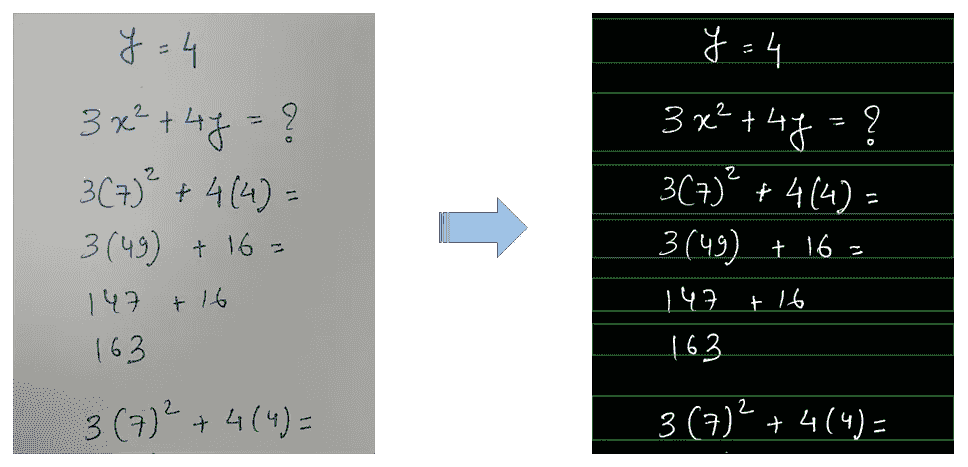 y = 4
3x² + 4y = ?
3(7)² + 4(4) =
3(49) + 16 =
147 + 16
163
3(7)² + 4(4) =
y = 4
3x² + 4y = ?
3(7)² + 4(4) =
3(49) + 16 =
147 + 16
163
3(7)² + 4(4) =